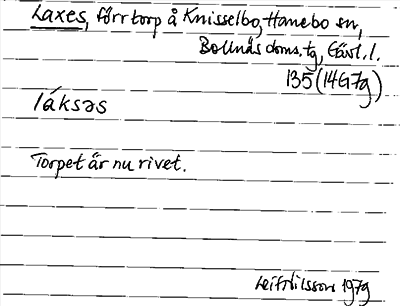 Laxes, förr torp å Knisselbo, Hanebo sn,
Bollnäs doms.tg, Gävl. l.
135 (14G7g)
láksəs
Torpet är nu rivet.
Leif Nilsson 1979